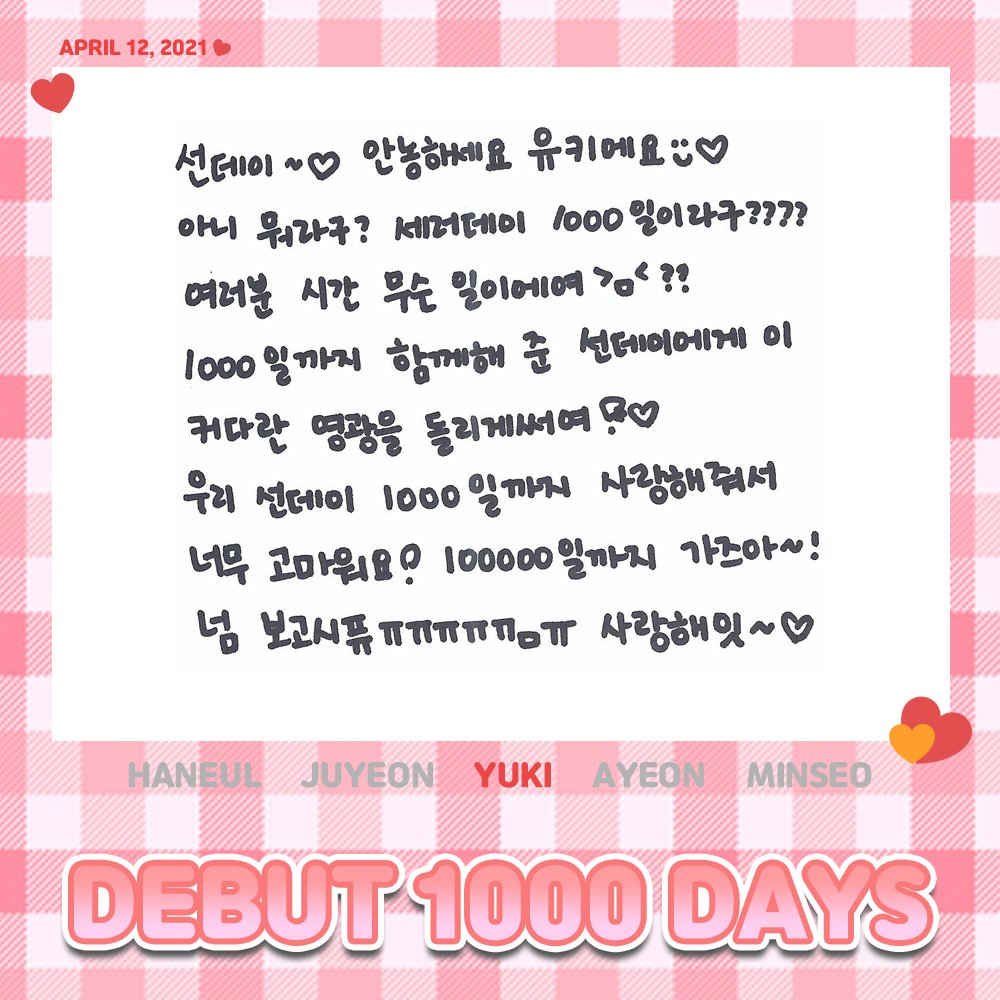 APRIL 12, 2021
선데이~♡ 안농해세요 유키에요:)♡
아니 뭐라구? 세러데이 1000일이라구????
여러분 시간 무슨 일이에여 >ㅁ< ??
1000일까지 함께해 준 선데이에게 이
커다란 영광을 돌리게써여!♡
우리 선데이 1000일까지 사랑해줘서
너무 고마워요! 100000일까지 가즈아~!
넘 보고시퓨ㅠㅠㅠㅠㅠㅠㅁㅠ 사랑해잇~♡
HANEUL JUYEON YUKI AYEON MINSEO
DEBUT 1000 DAYS